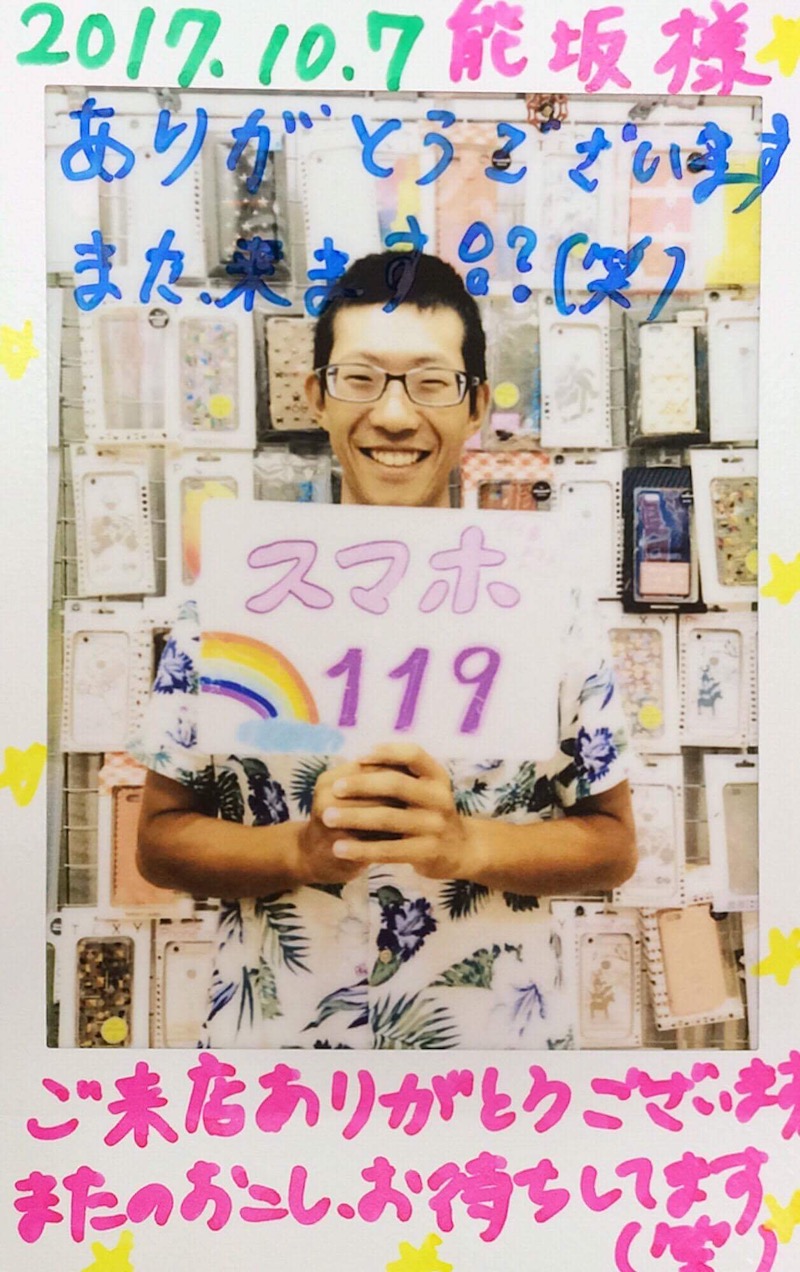 2017.10.7 能坂様
ありがとうございます
また、来ます!!?(笑)
スマホ
119
ご来店ありがとうございます
またのおこし、お待ちしてます
(笑)